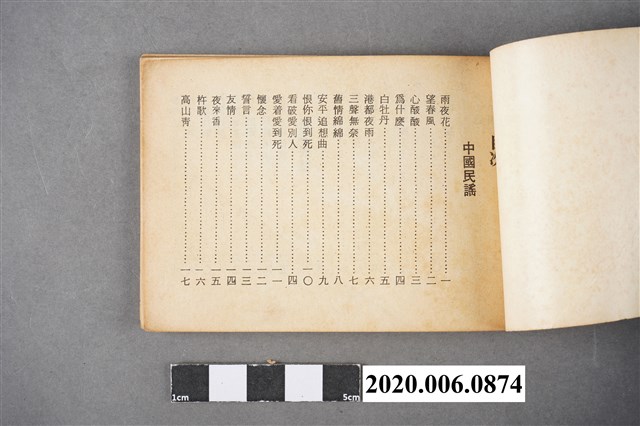 目次
中國民謠
雨夜花………一
望春風………二
心酸酸………三
爲什麼………四
白牡丹………五
港都夜雨………六
三聲無奈………七
舊情綿綿………八
安平追想曲………九
恨你恨到死………一〇
看破愛別人………四
愛着愛到死………一一
懷念………一二
誓言………一三
友情………一四
夜來香………一五
杵歌………一六
高山靑………一七
1cm
5cm
2020.006.0874